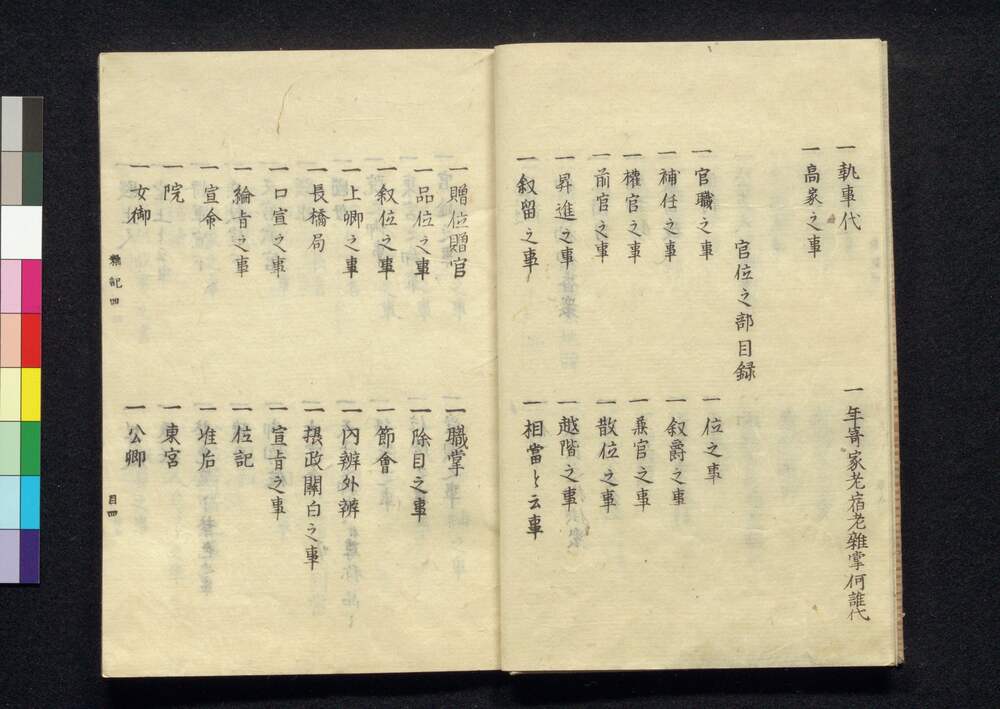 一執事代
一年寄家老宿老雜掌何誰代
一高家之事
官位之部目録
一官職之事
一位之事
一補任之事
一叙爵之事
一權官之事
一兼官之事
一前官之事
一散位之事
一昇進之事
一越階之事
一叙留之事
一相當と云事
一贈位贈官
一職掌之事
一品位之事
一除目之事
一叙位之事
一節會之事
一上卿之事
一內辨外辨
一長橋局
一摂政關白之事
一口宣之事
一宣旨之事
一綸旨之事
一位記
一宣命
一准后
一院
一東宮
一女御
一公卿
雜記四
目四